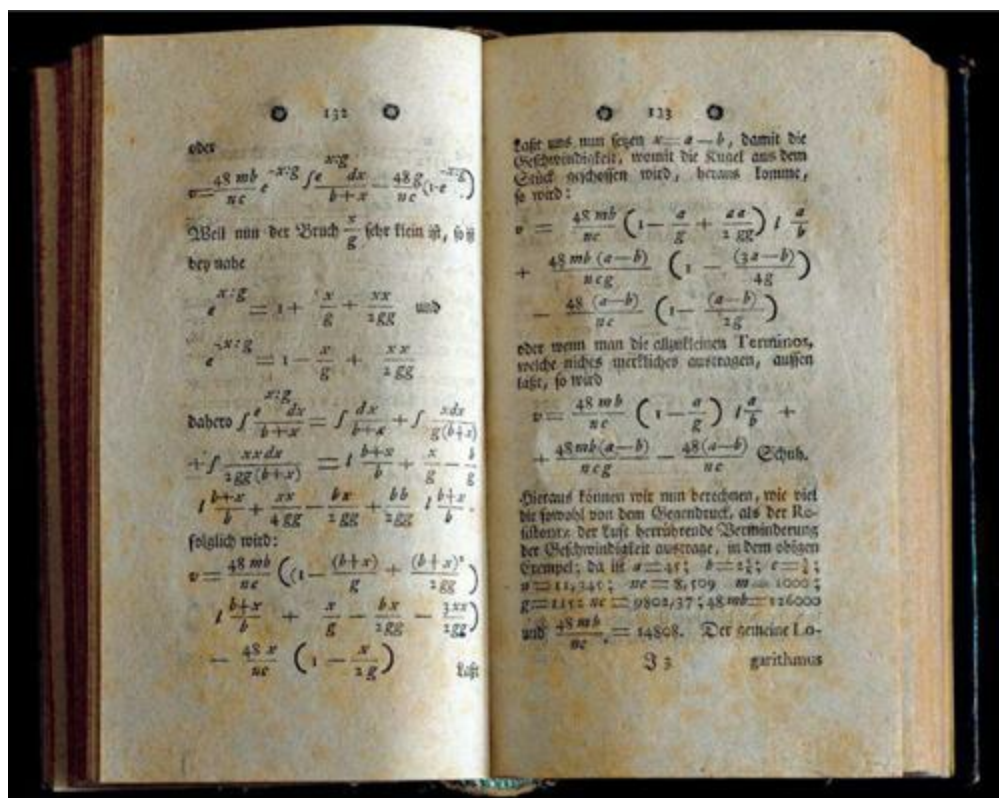 132
oder
v = 48 mb/nc e^-x:g ∫ e^x:g dx/b+x − 48 g/nc (1-e^-x:g)
Weil nun der Bruch x/g sehr klein ist, so ist
bey nahe
e^x:g = 1 + x/g + xx/2gg und
e^-x:g = 1 − x/g + xx/2gg
dahero ∫ e^x:g dx/b+x = ∫ dx/b+x + ∫ xdx/g(b+x)
+ ∫ xxdx/2gg(b+x) = l b+x/b + x/g − b/g
l b+x/b + xx/4gg − bx/2gg + bb/2gg l b+x/b.
folglich wird:
v = 48 mb/nc ((1 − (b+x)/g + (b+x)²/2gg)
l b+x/b + x/g − bx/2gg − 3xx/2gg)
− 48 x/nc (1 − x/2g)
Laßt
133
Laßt uns nun setzen x = a − b, damit die
Geschwindigkeit, womit die Kugel aus dem
Stück geschossen wird, heraus komme,
so wird:
v = 48 mb/nc (1 − a/g + aa/2gg) l a/b
+ 48 mb (a−b)/ncg (1 − (3a−b)/4g)
− 48 (a−b)/nc (1 − (a−b)/2g)
oder wenn man die allzukleinen Terminos,
welche nichts merkliches austragen, aussen
läßt, so wird
v = 48 mb/nc (1 − a/g) l a/b +
+ 48mb(a−b)/ncg − 48(a−b)/nc Schuh.
Hieraus können wir nun berechnen, wie viel
die sowohl von dem Gegendruck, als der Re-
sistentz der Luft herrührende Verminderung
der Geschwindigkeit austrage, in dem obigen
Exempel; da ist a = 45;
n = 11,345; nc = 8,509 m = 1000;
g = 1152 nc = 9802,37; 48 mb = 126000
und 48 mb/nc. = 14808. Der gemeine Lo-
J 3 garithmus